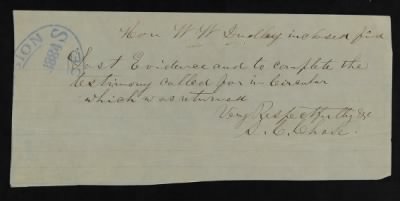 Hon W W Dudley inclosed find
Last Evidence and to complete the
testimony called for in Circular
which was returned
Very Respectfully &c
D. C. Chase.
SION
1884